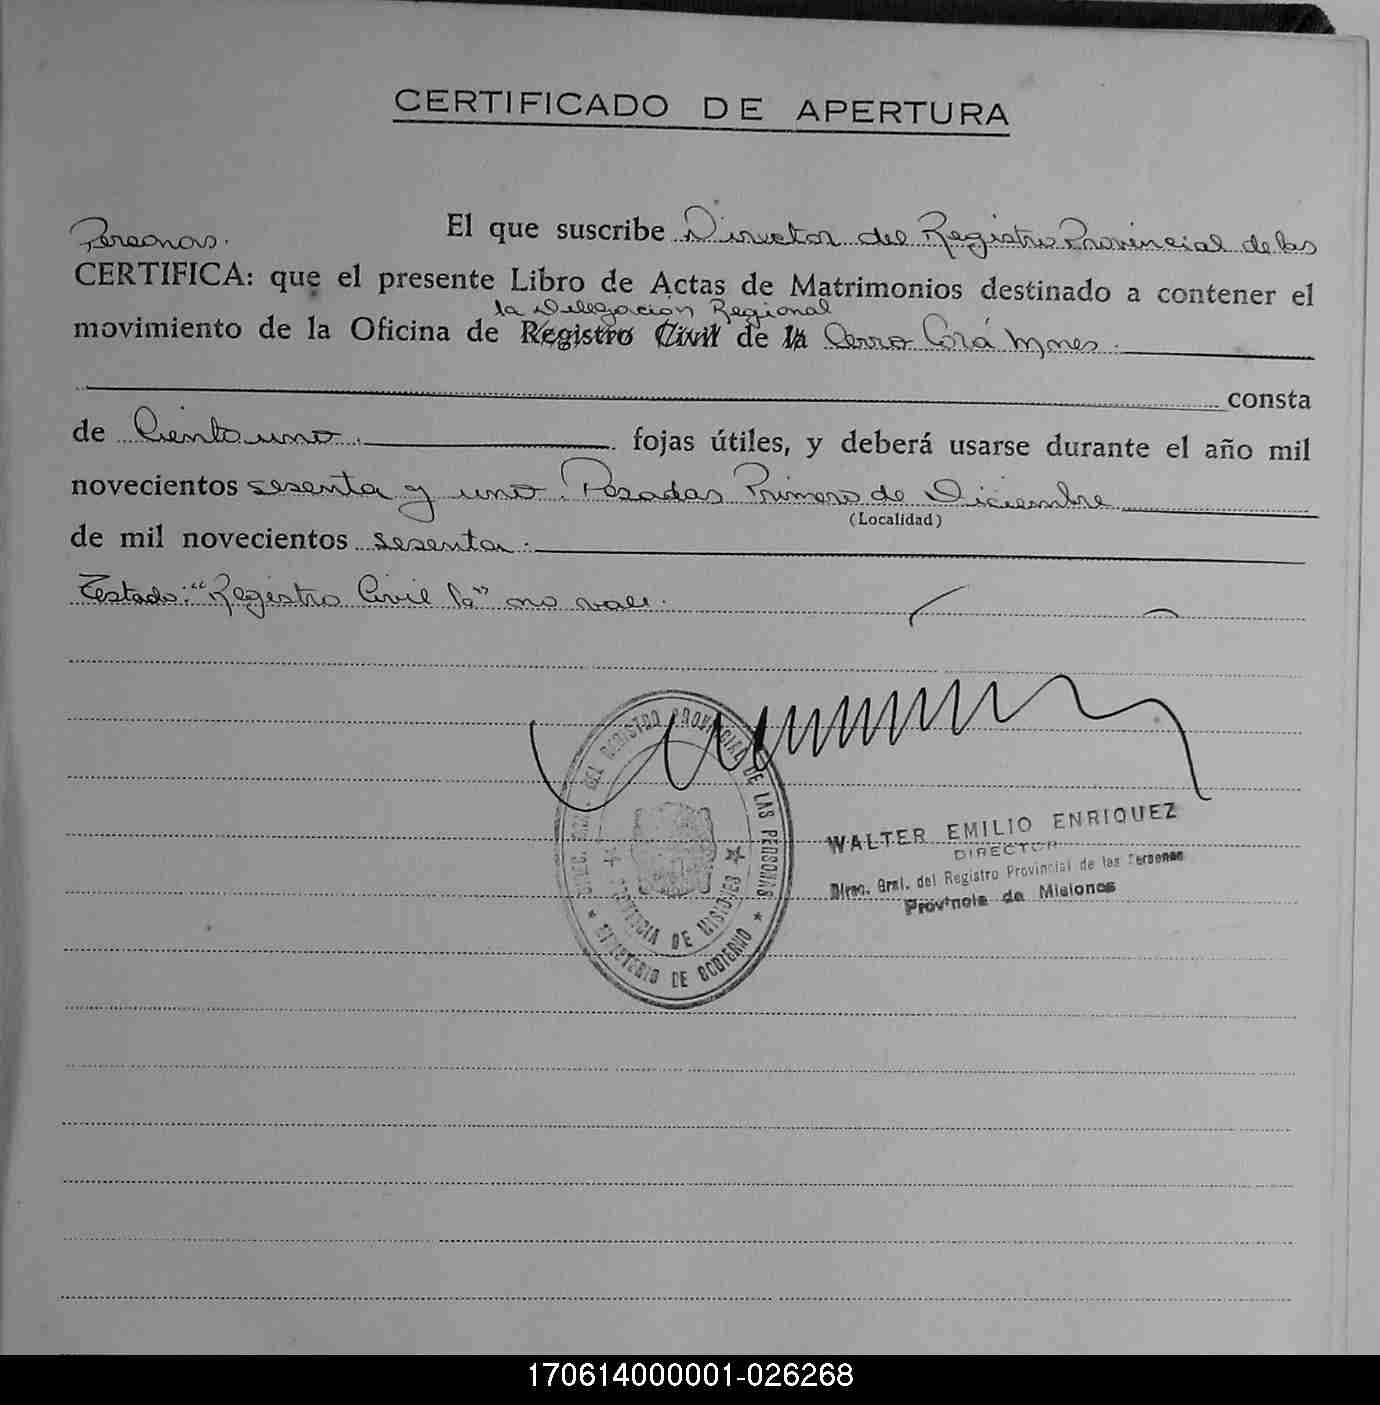 CERTIFICADO DE APERTURA
El que suscribe Director del Registro Provincial de las
Personas.
CERTIFICA: que el presente Libro de Actas de Matrimonios destinado a contener el
la Delegacion Regional
movimiento de la Oficina de Registro Civil de la Cerro Corá Mnes.
consta
de Ciento uno. fojas útiles, y deberá usarse durante el año mil
novecientos sesenta y uno. Posadas Primero de Diciembre
(Localidad)
de mil novecientos sesenta.
Testado: "Registro Civil la" no vale.
DEL REGISTRO PROVINCIAL DE LAS PERSONAS
PROVINCIA DE MISIONES
MINISTERIO DE GOBIERNO
WALTER EMILIO ENRIQUEZ
DIRECTOR
Direc. Gral. del Registro Provincial de las Personas
Provincia de Misiones
170614000001-026268